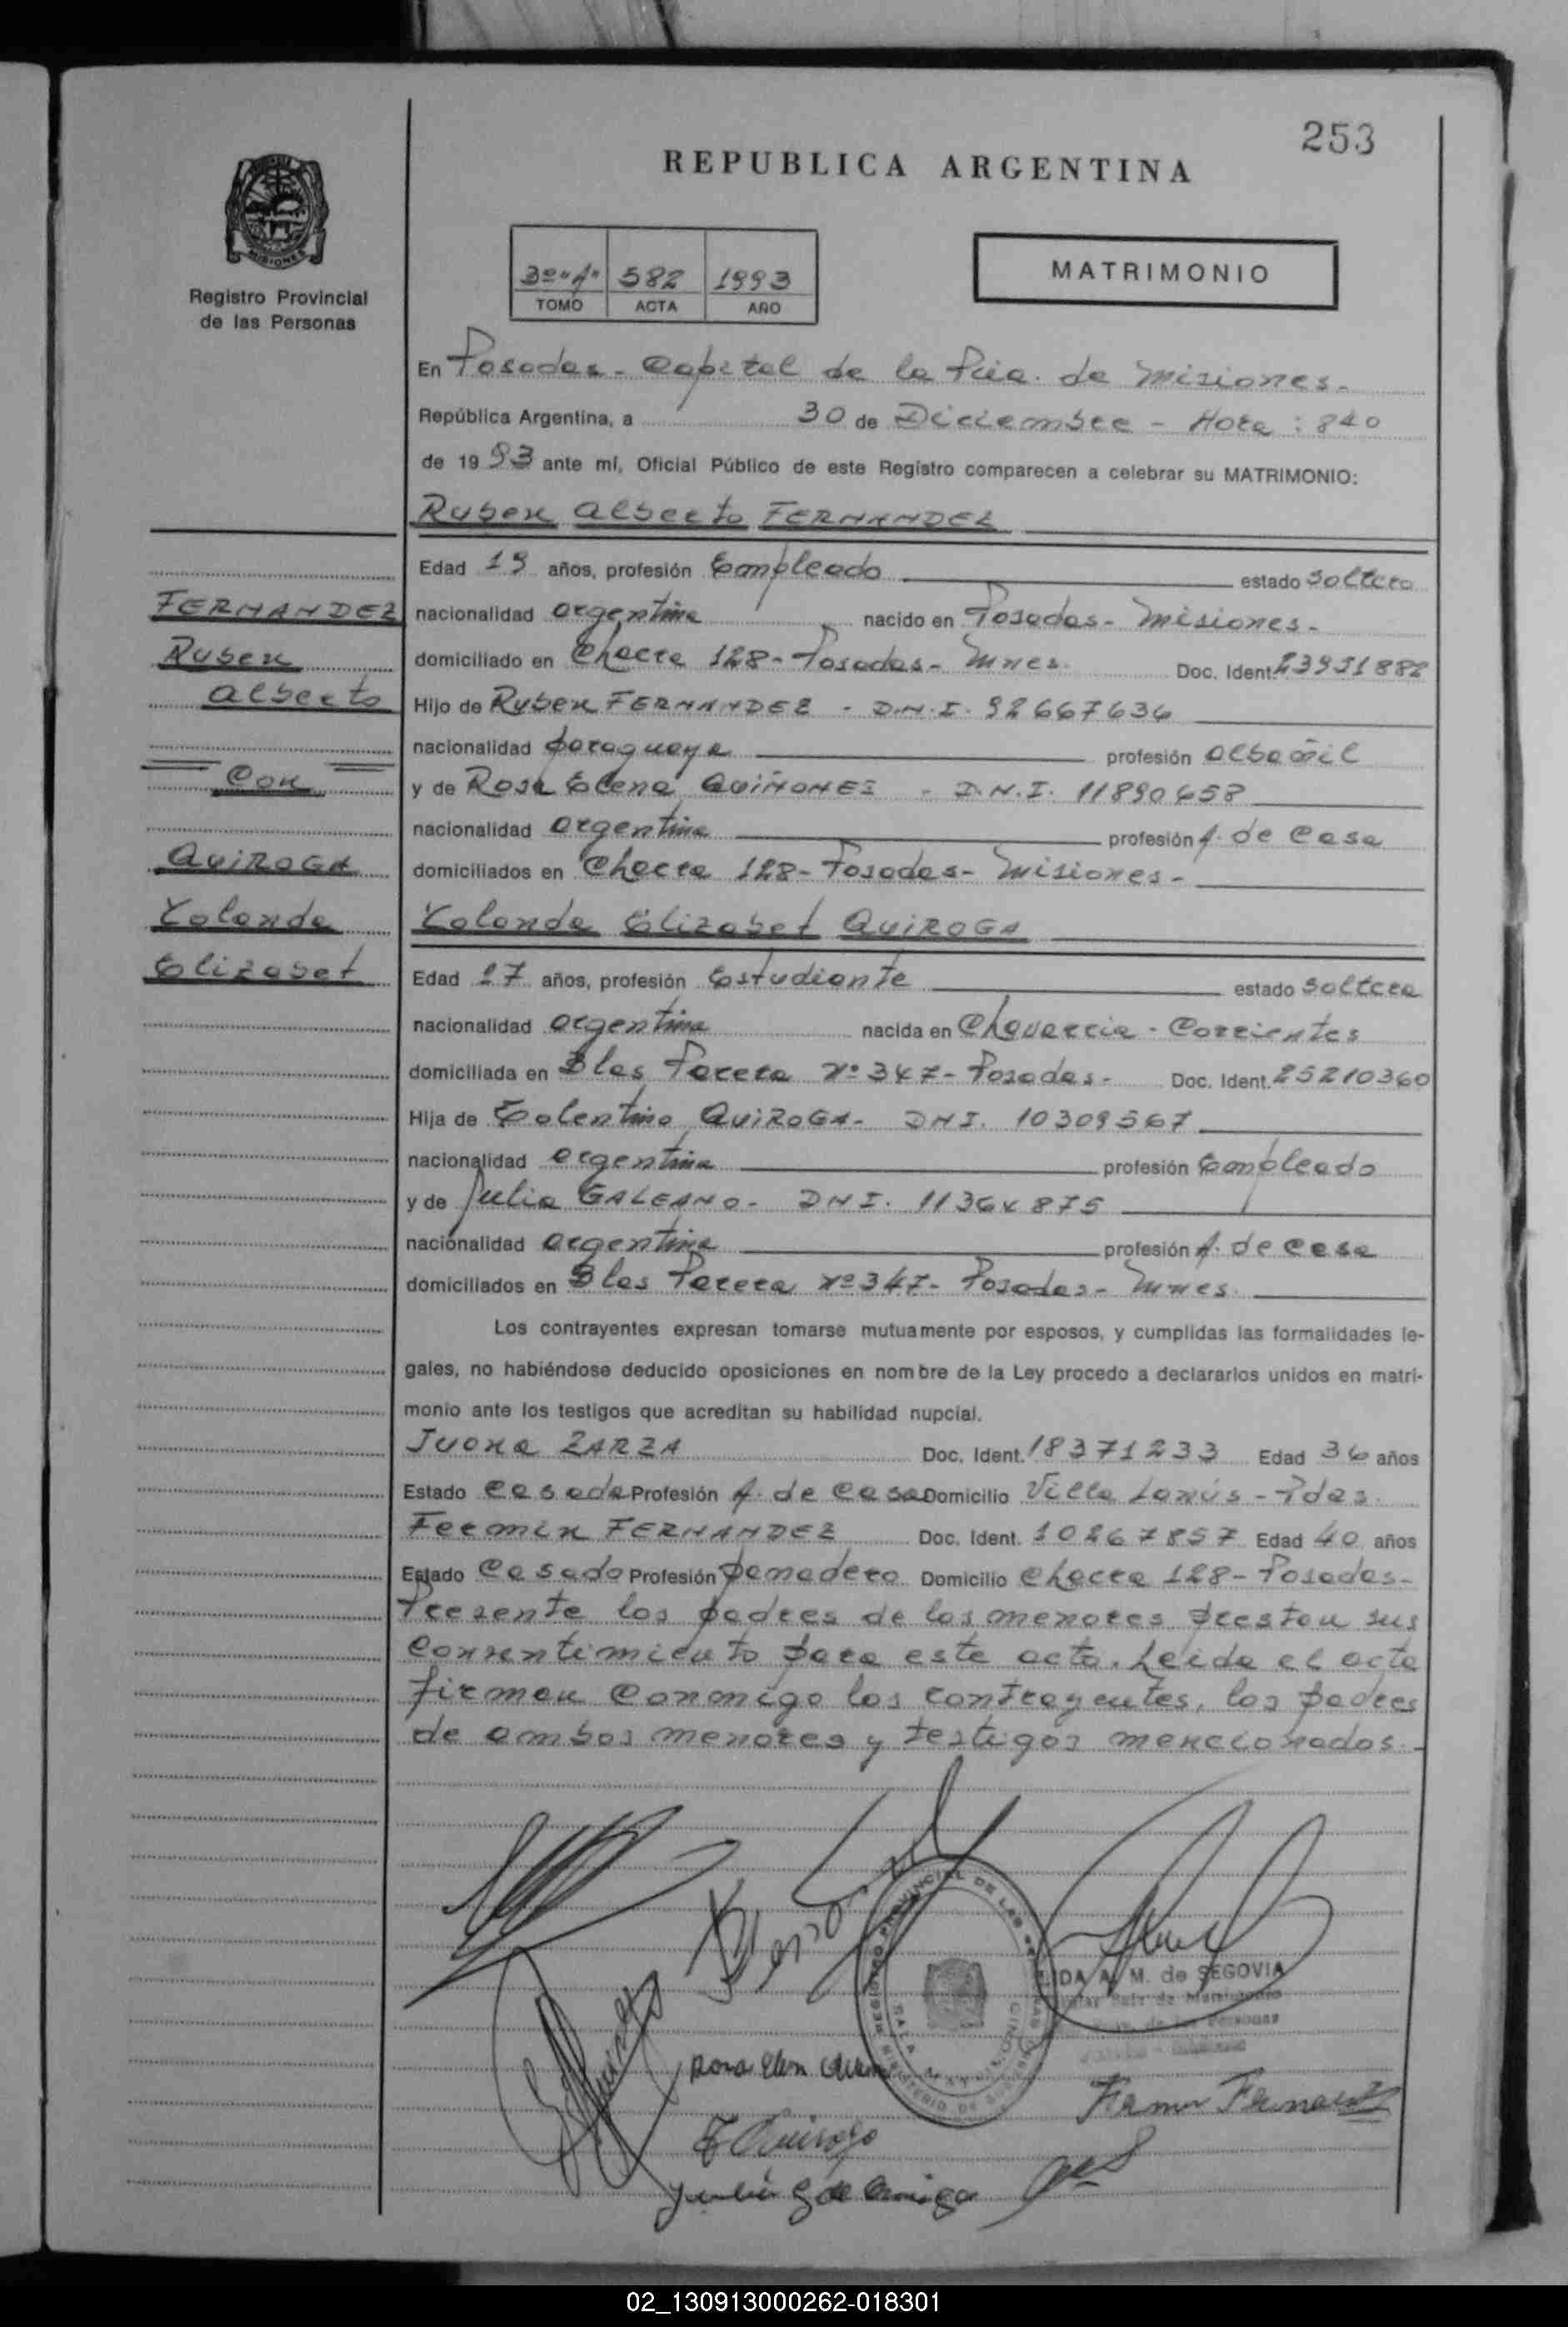 253
REPUBLICA ARGENTINA
MISIONES
Registro Provincial
de las Personas
3º "A" 582 1993
TOMO ACTA AÑO
MATRIMONIO
En Posadas - Capital de la Pcia. de Misiones.
República Argentina, a 30 de Diciembre - Hora: 840
de 1993 ante mí, Oficial Público de este Registro comparecen a celebrar su MATRIMONIO:
Ruben Alberto FERNANDEZ
Edad 19 años, profesión Empleado estado Soltero
FERNANDEZ
nacionalidad argentina nacido en Posadas - Misiones.
Ruben
domiciliado en Chacra 128 - Posadas - Mnes. Doc. Ident. 23931882
Alberto
Hijo de Ruben FERNANDEZ - D.N.I. 92667636
nacionalidad paraguaya profesión albañil
Con
y de Rosa Elena QUIÑONES - D.N.I. 11890658
nacionalidad argentina profesión A. de Casa
QUIROGA
domiciliados en Chacra 128 - Posadas - Misiones -
Yolanda
Yolanda Elizabet QUIROGA
Elizabet
Edad 17 años, profesión Estudiante estado Soltera
nacionalidad argentina nacida en Chavarria - Corrientes
domiciliada en Blas Parera Nº 347 - Posadas - Doc. Ident. 25210360
Hija de Tolentino QUIROGA - DNI. 10309567
nacionalidad argentina profesión Empleado
y de Julia GALEANO - DNI. 11364875
nacionalidad argentina profesión A. de casa
domiciliados en Blas Parera Nº 347 - Posadas - Mnes.
Los contrayentes expresan tomarse mutuamente por esposos, y cumplidas las formalidades le-
gales, no habiéndose deducido oposiciones en nombre de la Ley procedo a declararlos unidos en matri-
monio ante los testigos que acreditan su habilidad nupcial.
Juana ZARZA Doc. Ident. 18371233 Edad 36 años
Estado Casada Profesión A. de Casa Domicilio Villa Lanús - Pdas.
Fermin FERNANDEZ Doc. Ident. 10267857 Edad 40 años
Estado Casado Profesión panadero Domicilio Chacra 128 - Posadas -
Presente los padres de los menores prestan sus
consentimiento para este acto. Leida el acta
firman conmigo los contrayentes, los padres
de ambos menores y testigos mencionados.-
REGISTRO PROVINCIAL DE LAS
A. M. de SEGOVIA
de las Personas
Rosa Elen
T Quiroga
02_130913000262-018301